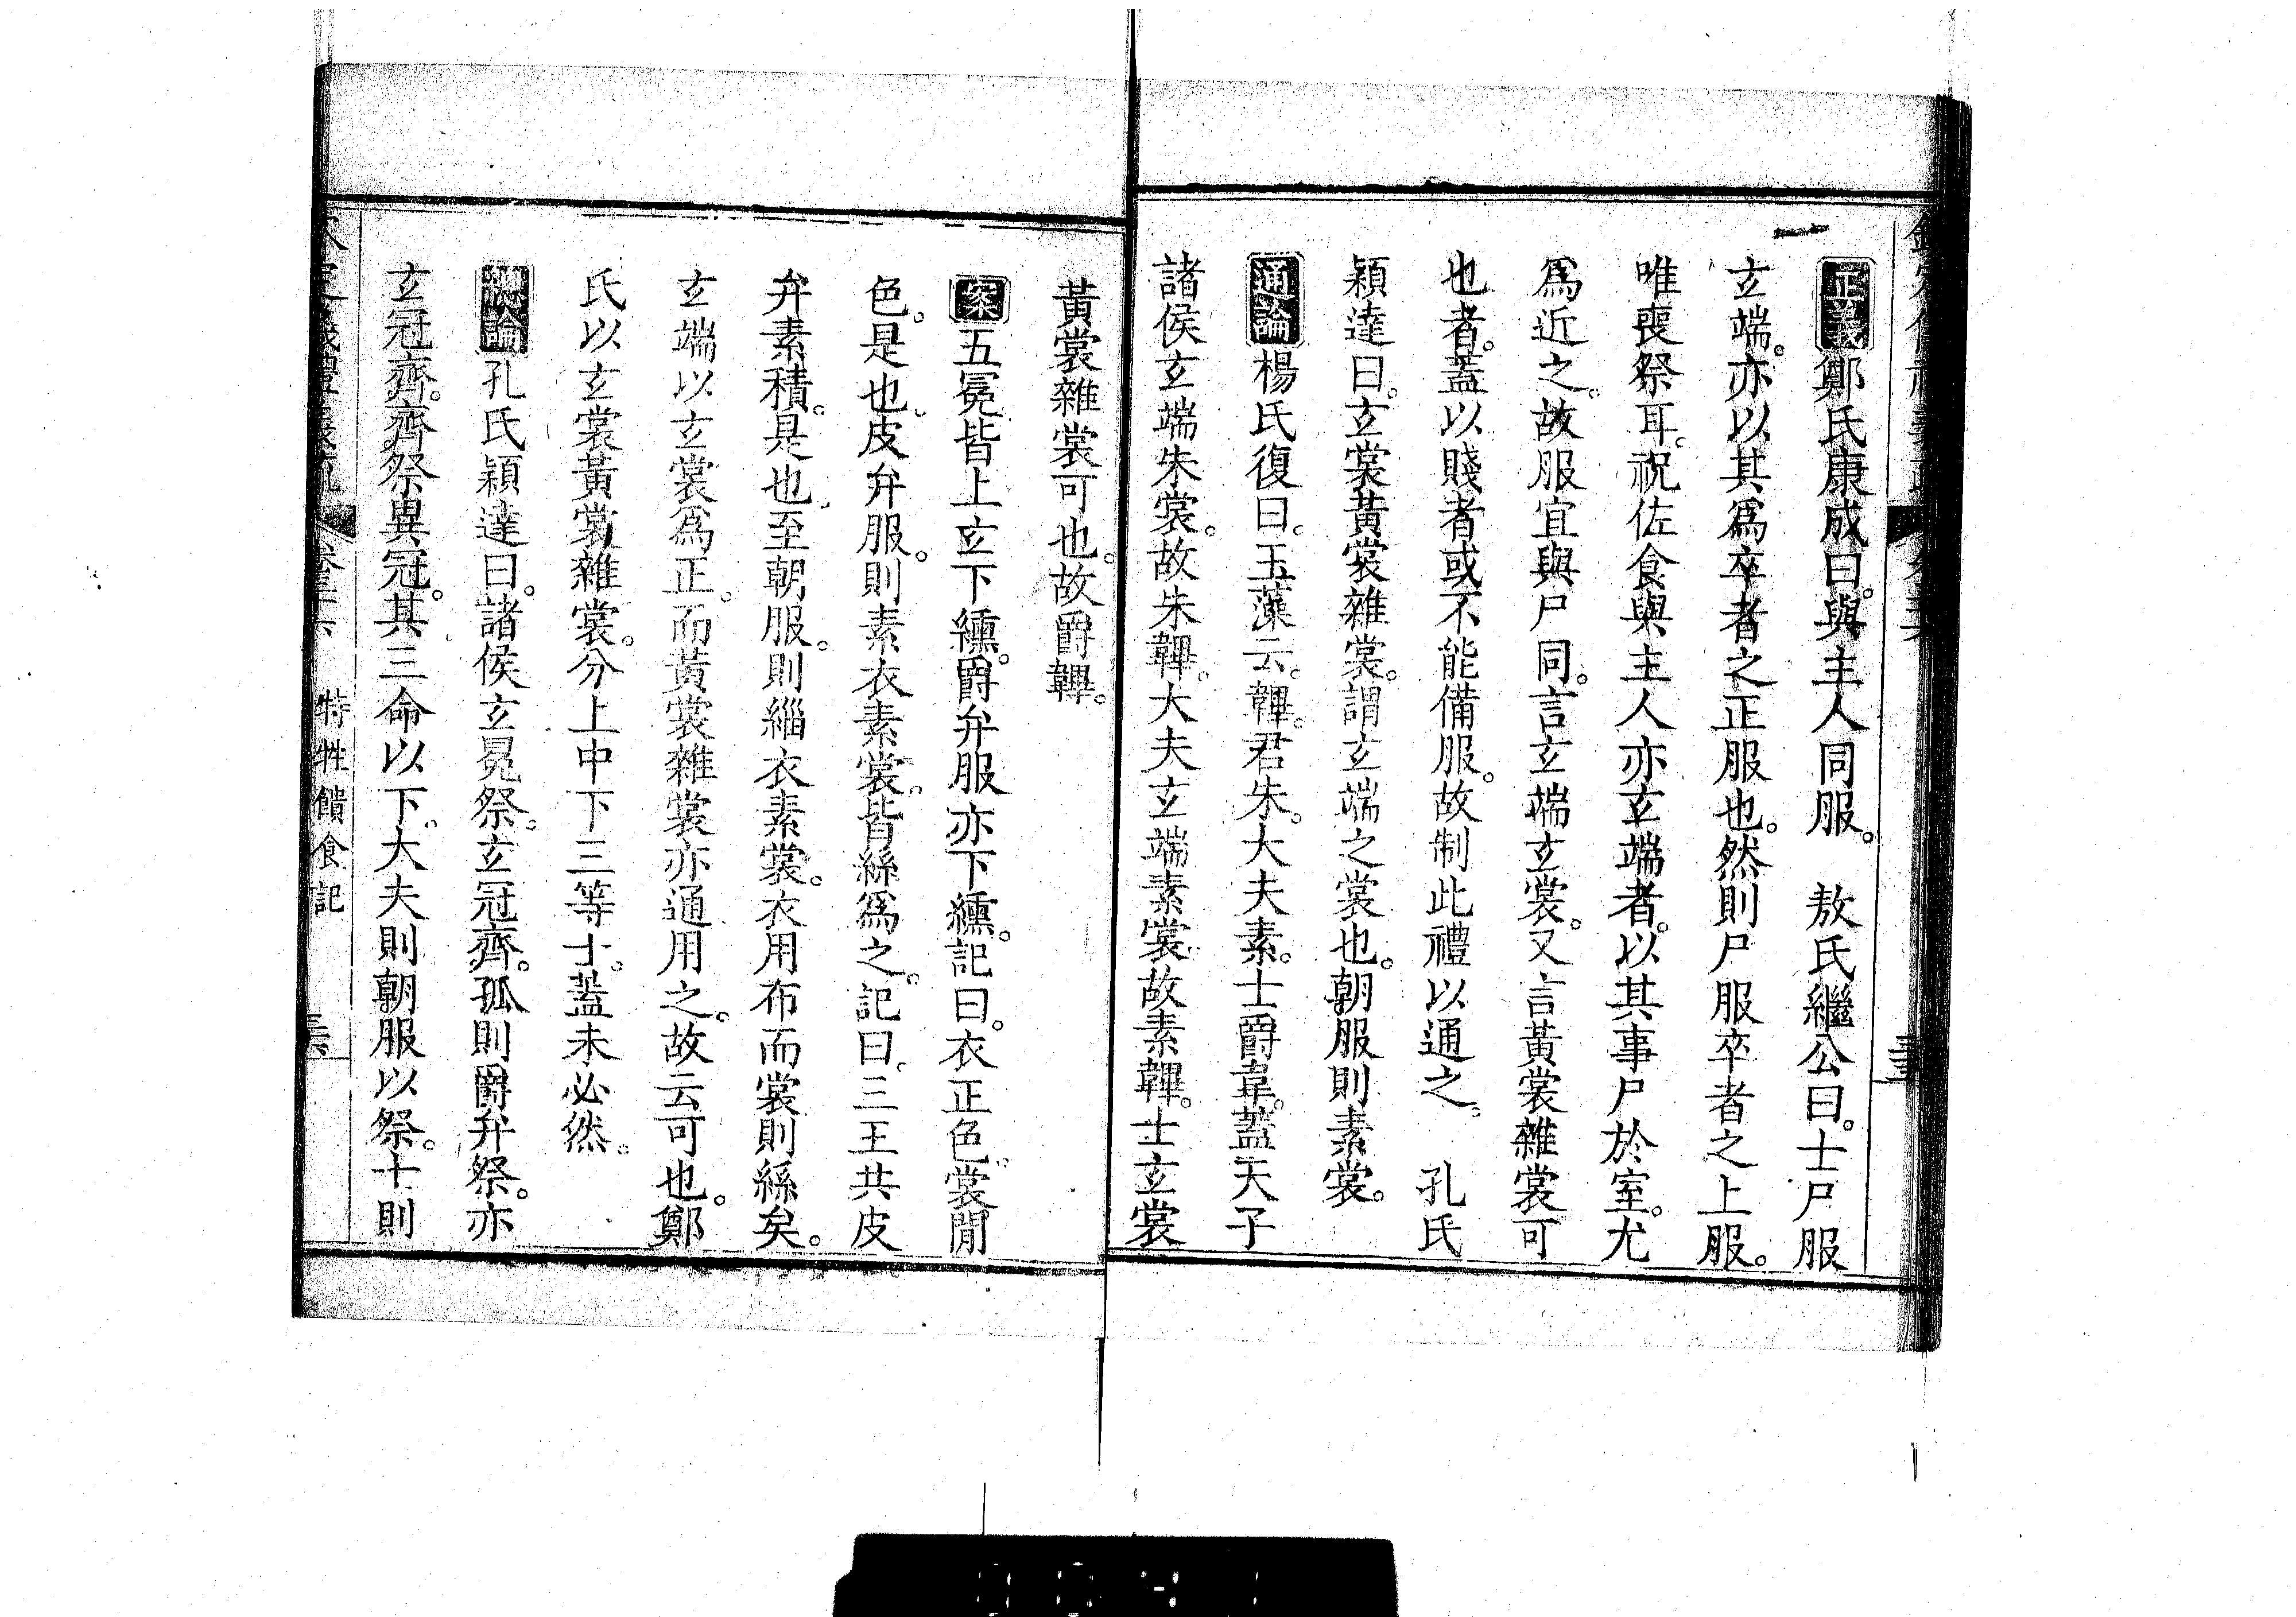 正義鄭氏康成曰。與主人同服。 敖氏繼公曰。士尸服
玄端。亦以其爲卒者之正服也。然則尸服卒者之上服。
唯喪祭耳。祝佐食與主人亦玄端者。以其事尸於室。尤
爲近之。故服宜與尸同。言玄端玄裳。又言黃裳雜裳可
也者。蓋以賤者或不能備服。故制此禮以通之。 孔氏
穎達曰。玄裳黃裳雜裳。謂玄端之裳也。朝服則素裳。
通論楊氏復曰。玉藻云。韠。君朱。大夫素。士爵韋。蓋天子
諸侯玄端朱裳。故朱韠。大夫玄端素裳。故素韠。士玄裳
黃裳雜裳可也。故爵韠。
案五冕皆上玄下纁。爵弁服亦下纁。記曰。衣正色。裳閒
色。是也。皮弁服。則素衣素裳。皆絲爲之。記曰。三王共皮
弁素積。是也。至朝服。則緇衣素裳。衣用布而裳則絲矣。
玄端以玄裳爲正。而黃裳雜裳亦通用之。故云可也。鄭
氏以玄裳黃裳雜裳。分上中下三等士。蓋未必然。
總論孔氏穎達曰。諸侯玄冕祭。玄冠齊。孤則爵弁祭。亦
玄冠齊。齊祭異冠。其三命以下。大夫則朝服以祭。士則
特牲饋食記